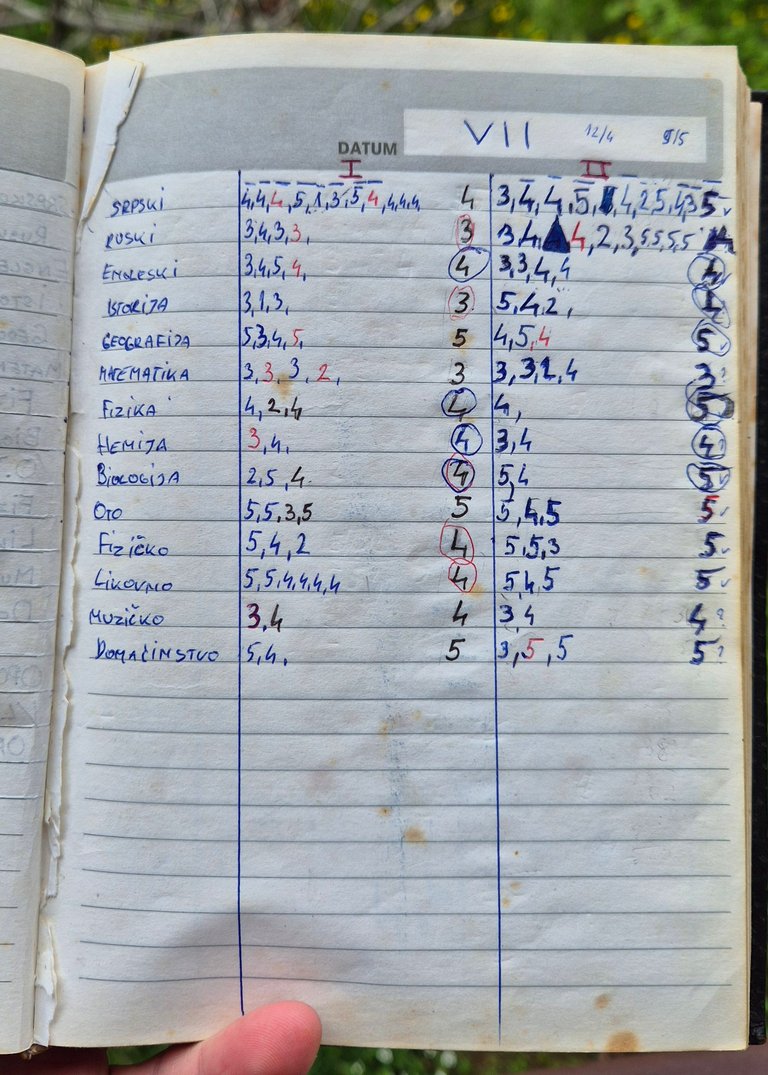 VII 12/4 9/5
DATUM
I II
SRPSKI 4,4,4,5,1,3,5,4,4,4,4 4 3,4,4,5, 4,2,5,4,3 5
RUSKI 3,4,3,3, 3 3,4, 4,2,3,5,5,5,5 4
ENGLESKI 3,4,5,4, 4 3,3,4,4 4
ISTORIJA 3,1,3, 3 5,4,2, 4
GEOGRAFIJA 5,3,4,5, 5 4,5,4 5
MATEMATIKA 3,3,3,2, 3 3,3,2,4 3?
FIZIKA 4,2,4 4 4, 5
HEMIJA 3,4, 4 3,4 4?
BIOLOGIJA 2,5,4 4 5,4 5
OTO 5,5,3,5 5 5,4,5 5
FIZIČKO 5,4,2 4 5,5,3 5
LIKOVNO 5,5,4,4,4,4 4 5,4,5 5
MUZIČKO 3,4 4 3,4 4?
DOMAĆINSTVO 5,4, 5 3,5,5 5?